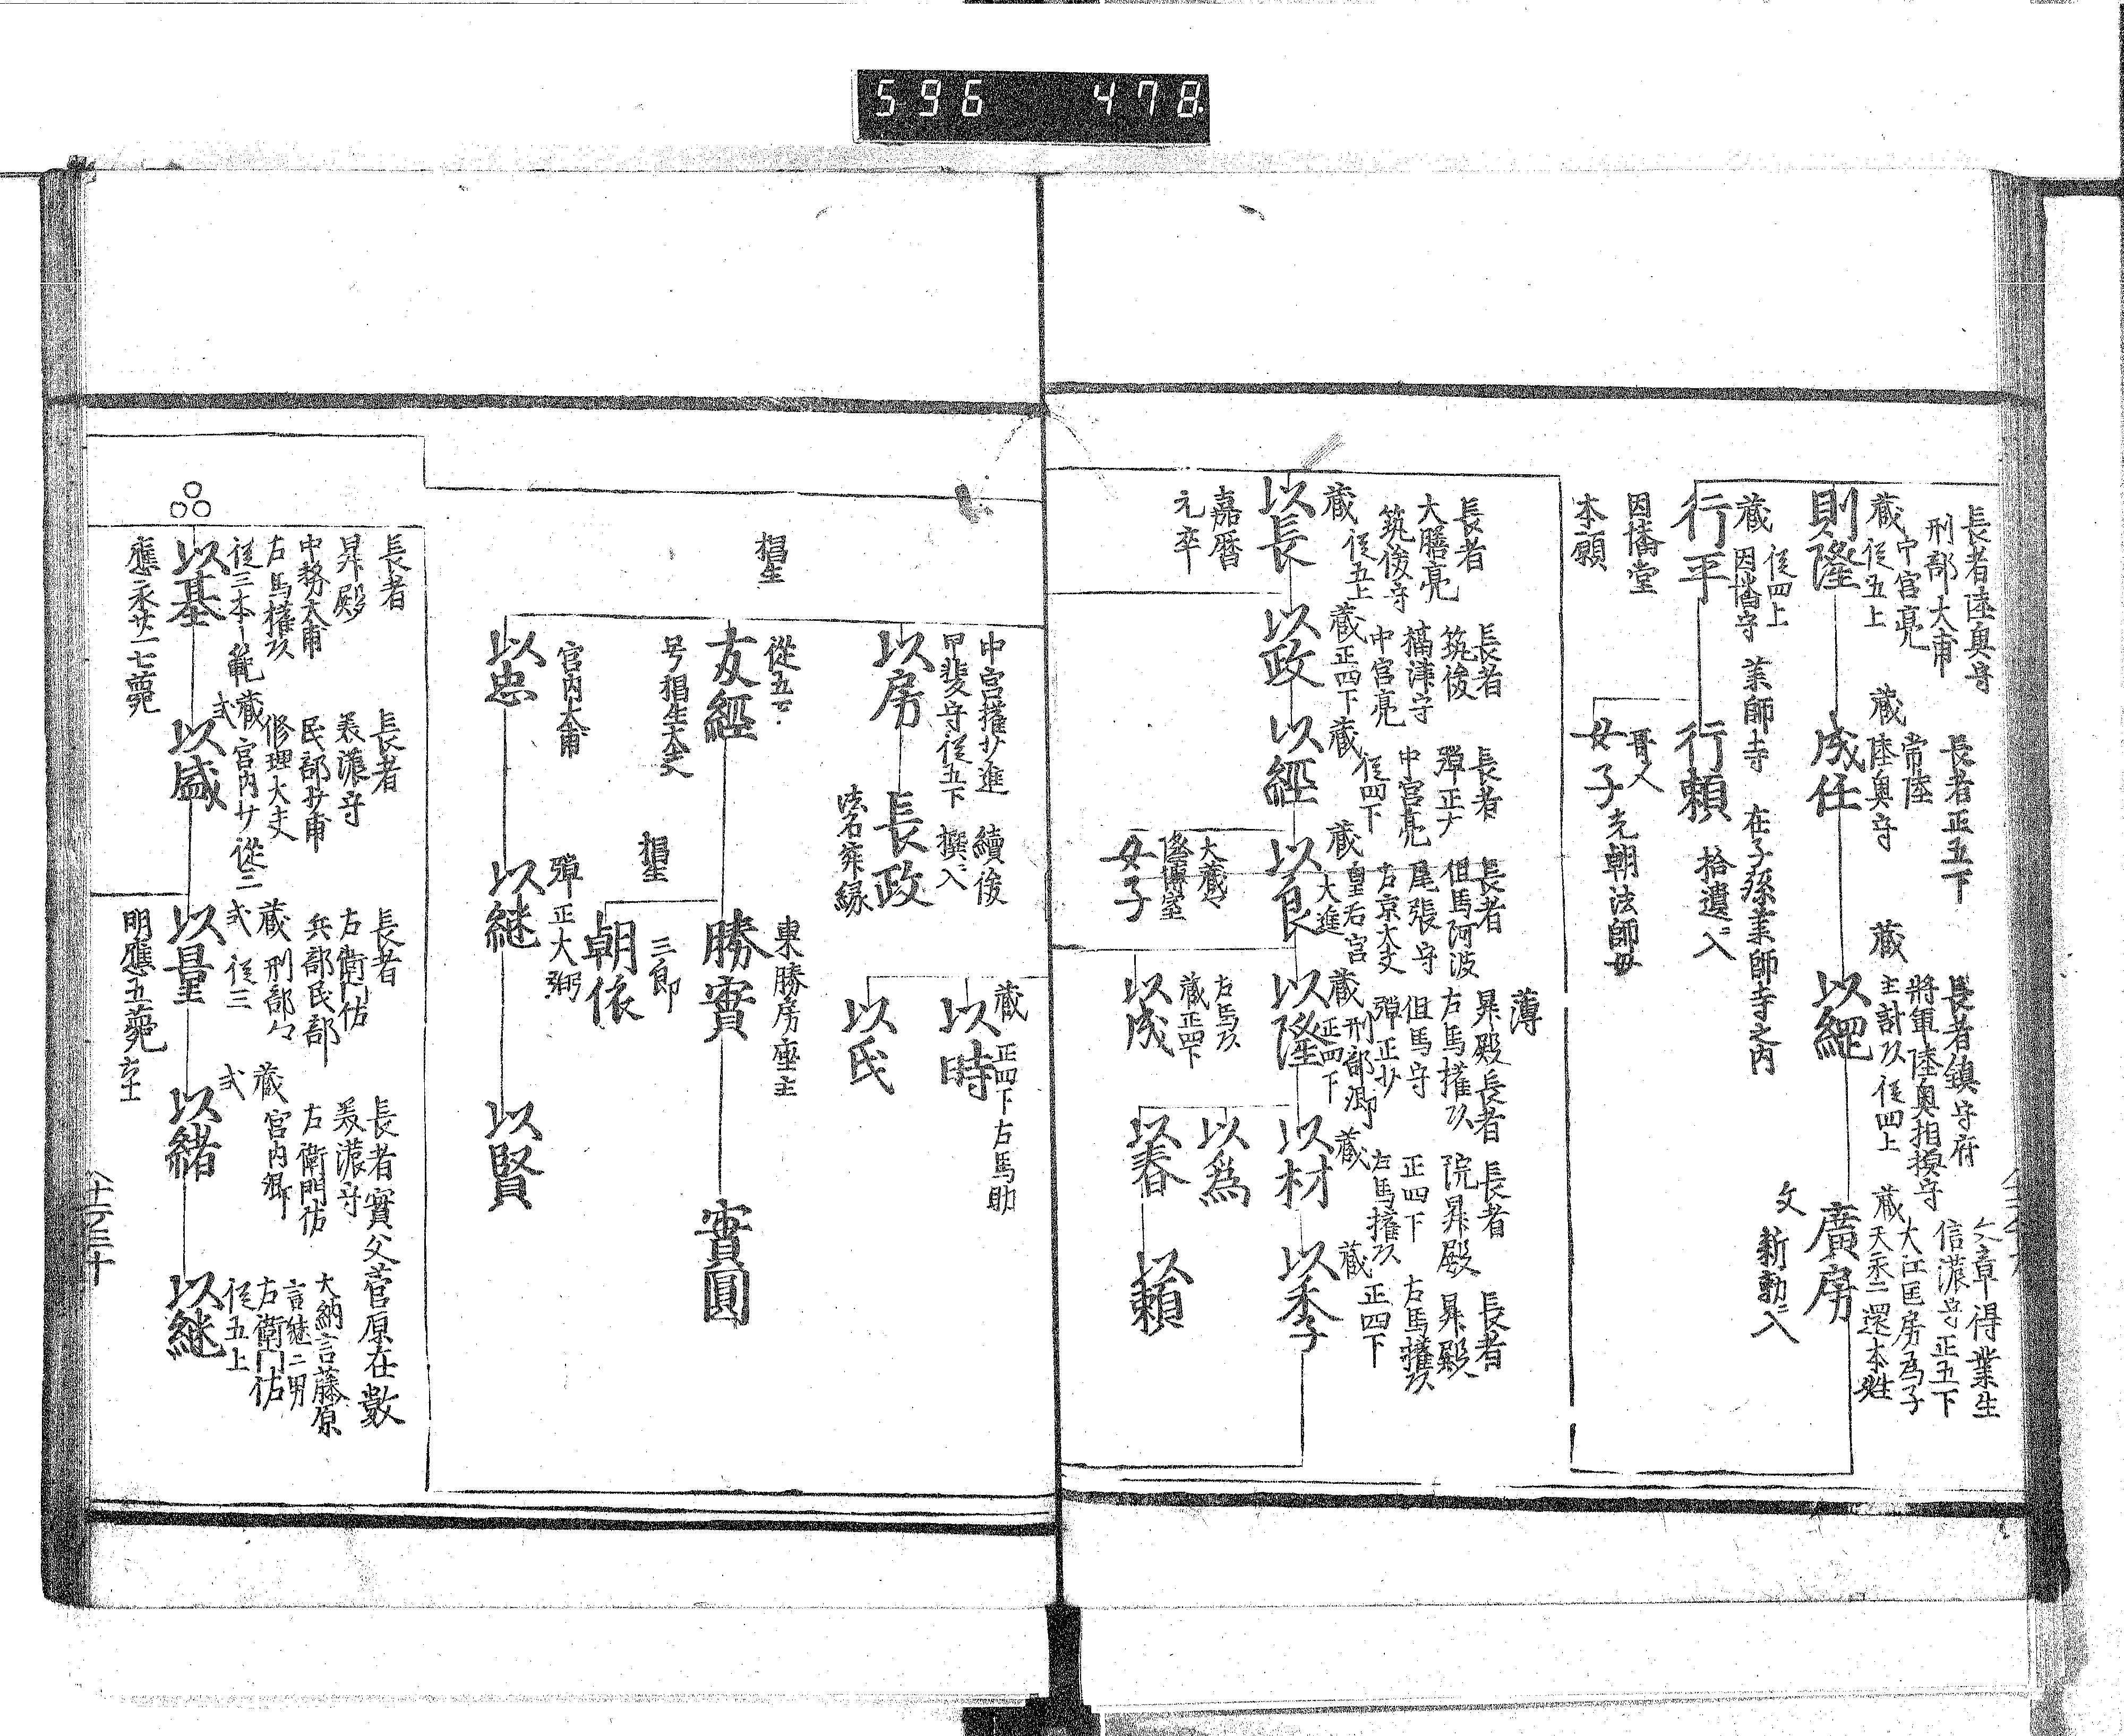 596 478
長者陸奥守
刑部大甫
中宮亮
蔵 従五上
則隆
長者正五下
常陸
蔵 陸奥守
成任
長者鎮守府
将軍陸奥相摸守
主計以従四上
蔵
以綱
文章得業生
信濃守正五下
大江匡房為子
蔵 天永二還本姓
廣房
文
新勅入
従四上
蔵 因幡守
行平
因幡堂
本願
薬師寺 在子孫薬師寺之内
行頼
拾遺入
哥人
女子
元朝法師母
長者
大膳亮
筑後守
蔵 従五上
以長
嘉暦
元卒
長者
筑後
摂津守
中宮亮
蔵 正四下
以政
長者
弾正大
中宮亮
蔵 従四下
以經
長者
但馬阿波
尾張守
右京大夫
皇后宮
大進
蔵
以良
大蔵
女子
薄
昇殿長者
右馬権以
但馬守
弾正少
蔵 刑部卿
正四下
以隆
右馬以
蔵 正四下
以成
長者
院昇殿
正四下
左馬権以
蔵
以材
以為
以春
以頼
長者
昇殿
右馬権以
蔵 正四下
以季
中宮権少進
甲斐守従五下
以房
續後
撰入
長政
法名寂縁
蔵 正四下右馬助
以時
以氏
従五下
友經
号狛生大夫
東勝房座主
勝實
實圓
三郎
朝依
宮内大甫
以忠
弾正大弼
以継
以賢
長者
昇殿
中務大甫
右馬権以
従三
以基
應永廿一七薨
長者
美濃守
民部少甫
修理大夫
蔵 宮内少 従二
弍
以盛
長者
右衛門佐
兵部民部
蔵 刑部々
弍 従三
以量
明應五薨
長者實父菅原在數
美濃守
右衛門佐
蔵 宮内卿
弍
以緒
大納言藤原
言継二男
右衛門佐
従五上
以継